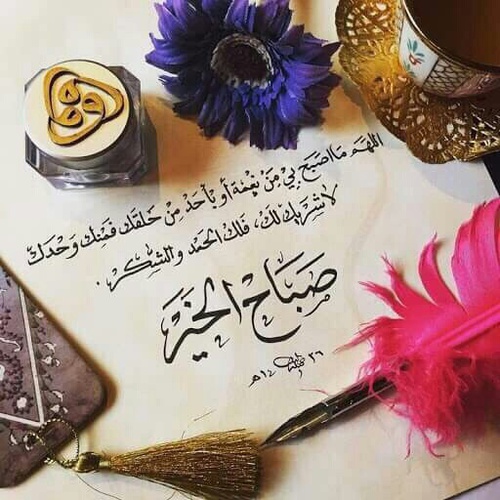 اللهم ما أصبح بي من نعمة أو بأحد من خلقك فمنك وحدك
لا شريك لك، فلك الحمد والشكر.
صباح الخير